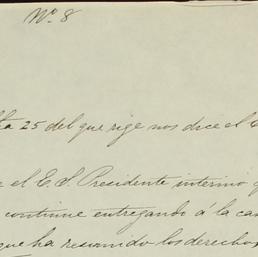 Nº 8
ta 25 del que rige nos dice el
e el E. S. Presidente interino
continue entregando á la
que ha resumido los derechos